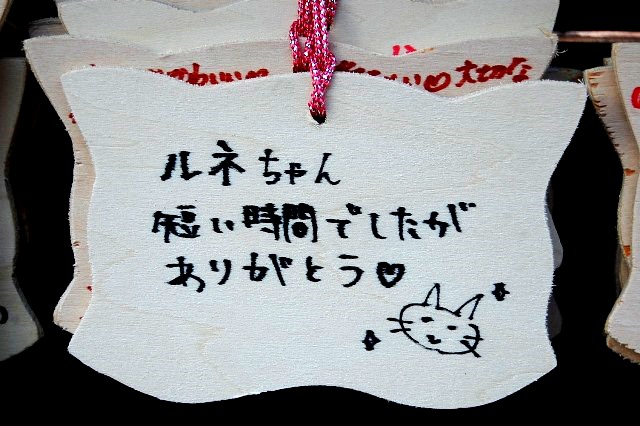 大切な
ルネちゃん
短い時間でしたが
ありがとう♡